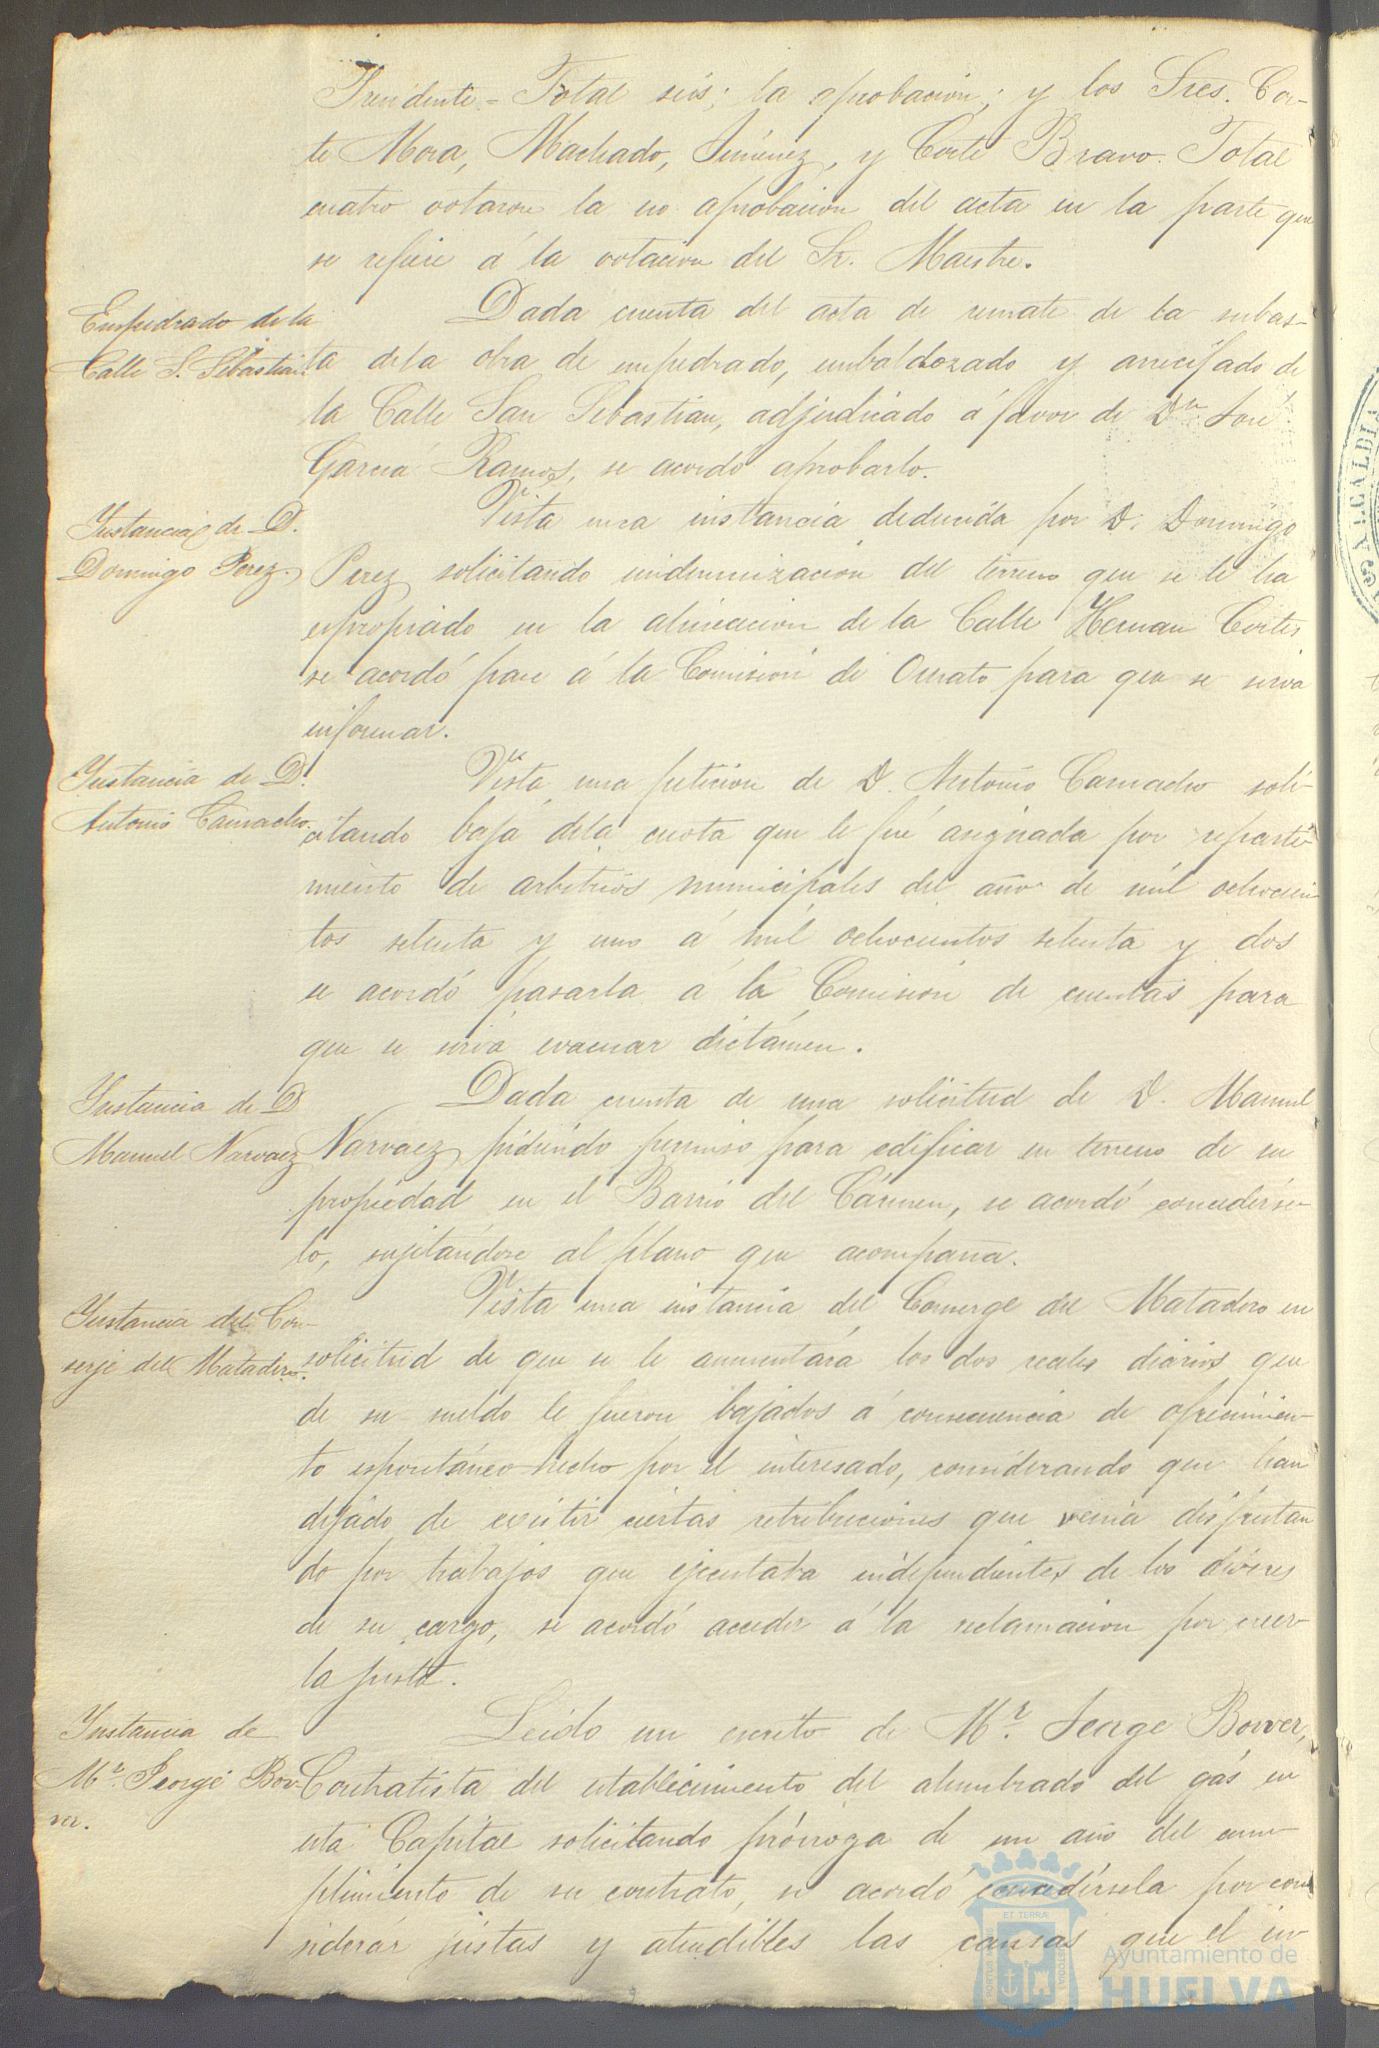 Presidente.= Total seis; la aprobacion; y los Sres. Cor-
te Mora, Machado, Jimenez, y Corte Bravo. Total
cuatro votaron la no aprobacion del acta en la parte que
se refiere á la votacion del Sr. Maestre.
Empedrado de la
Calle S. Sebastian
Dada cuenta del acta de remate de la subas-
ta de la obra de empedrado, embaldozado y arrecifado de
la Calle San Sebastian, adjudicado á favor de Dn José
Garcia Ramos, se acordó aprobarlo.
Instancia de D.
Domingo Perez.
Vista una instancia deducida por D. Domingo
Perez solicitando indemnizacion del terreno que se le ha
espropiado en la alineacion de la Calle Hernan Cortes
se acordó pase á la Comision de Ornato para que se sirva
informar.
Instancia de D.
Antonio Camacho.
Vista una peticion de D. Antonio Camacho soli-
citando baja de la cuota que le fué asignada por reparti-
miento de arbitrios municipales del año de mil ochocien-
tos setenta y uno á mil ochocientos setenta y dos
se acordó pasarla á la Comision de cuentas para
que se sirva evacuar dictámen.
Instancia de D
Manuel Narvaez
Dada cuenta de una solicitud de D. Manuel
Narvaez pidiendo permiso para edificar en terreno de su
propiedad en el Barrio del Cármen, se acordó concederse-
lo, sujetándose al plano que acompaña.
Instancia del Con-
serje del Matadero.
Vista una instancia del Conserge del Matadero en
solicitud de que se le aumentára los dos reales diarios que
de su sueldo le fueron bajados á consecuencia de ofrecimien-
to espontáneo hecho por el interesado, considerando que han
dejado de existir ciertas retribuciones que venia disfrutan
do por trabajos que ejecutaba independientes de los dévéres
de su cargo, se acordó acceder á la reclamacion por creer-
la justa.
Instancia de
Mr. George Bow-
ver.
Leido un escrito de Mr. George Bowver,
Contratista del establecimiento del alumbrado del gás en
esta Capital solicitando prórroga de un año del cum-
plimiento de su contrato, se acordó concedérsela por con
siderár justas y atendibles las causas que el in-
Ayuntamiento de
HUELVA